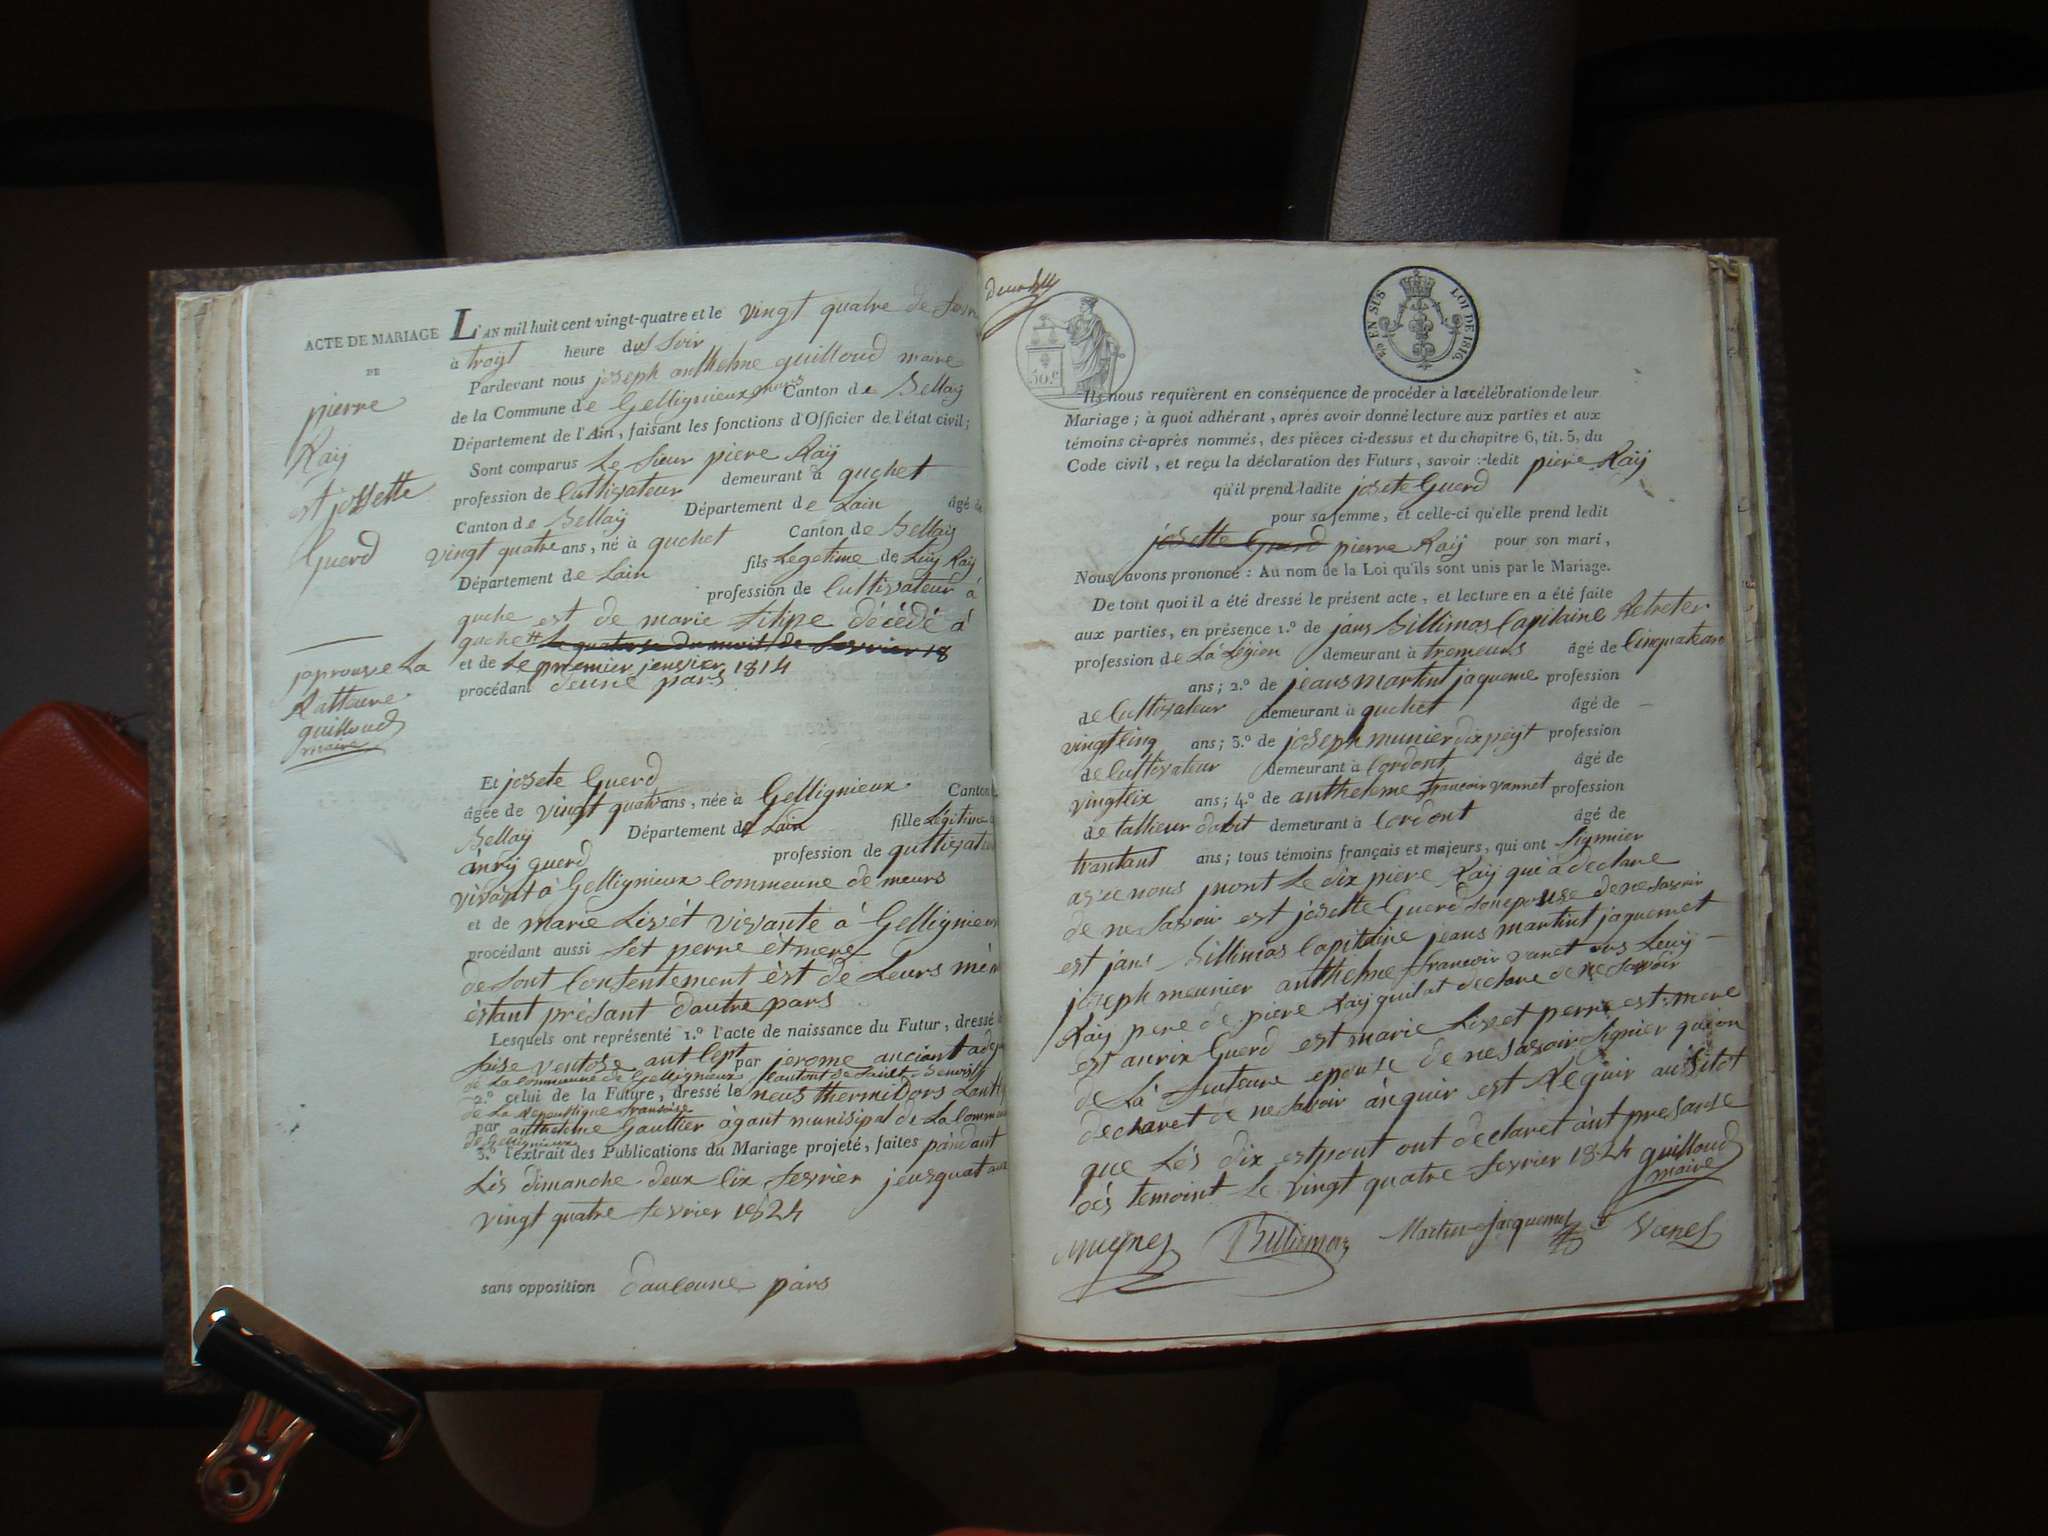 ACTE DE MARIAGE
DE
pierre
Raÿ
est jossette
Guerd
japrouve La
Ratteure
guilloud
maire
L'AN mil huit cent vingt-quatre et le vingt quatre de fevr
à troyt heure du Soir
Pardevant nous joseph anthelme guilloud maire
de la Commune de Gellignieux murs Canton de Bellaÿ
Département de l'Ain, faisant les fonctions d'Officier de l'état civil;
Sont comparus Le Sieur piere Raÿ
profession de Cultivateur demeurant à guchet
Canton de Bellaÿ Département de Lain âgé de
vingt quatre ans, né à guchet Canton de Bellaÿ
Département de Lain fils Legetime de Luÿ Raÿ
profession de Cultivateur à
guche est de marie filipe décédé à
guchett le quatorse du moit de fevrier 18
et de Le premier jenvier 1814
procédant deune pars
Et josete Guerd
âgée de vingt quatre ans, née à Gellignieux Canton
Bellaÿ Département de Lain fille Légitime
ànrÿ guerd profession de qultivat
vivant à Gellignieux Commeune de meurs
et de marie Livét vivante à Gellignieu
procédant aussi Set perre ètmere
de sont Consentement èst de Leurs mém
èstant présant dautre pars
Lesquels ont représenté 1.º l'acte de naissance du Futur, dressé
saise ventose ant Sept par jerome anciant
de La Commeune de Gellignieux Cantont de
2.º celui de la Future, dressé le neus thermidors Lant
de La Republique fransaise
par anthelme Gaultier àgant munisipal de La Commeu
de Gellignieux
3.º l'extrait des Publications du Mariage projeté, faites pandant
Lés dimanche deux Six fevrier jeusquat aux
vingt quatre fevrier 1824
sans opposition daucune pàrs
50.c
EN SUS
LOI DE 1816
Ils nous requièrent en conséquence de procéder à la célébration de leur
Mariage; à quoi adhérant, après avoir donné lecture aux parties et aux
témoins ci-après nommés, des pièces ci-dessus et du chapitre 6, tit. 5, du
Code civil, et reçu la déclaration des Futurs, savoir: ledit piere Raÿ
qu'il prend ladite josete Guerd
pour sa femme, et celle-ci qu'elle prend ledit
josette Guerd pierre Raÿ pour son mari,
Nous avons prononcé: Au nom de la Loi qu'ils sont unis par le Mariage.
De tout quoi il a été dressé le présent acte, et lecture en a été faite
aux parties, en présence 1.º de jans Billimas Capitaine Retreter
profession de La Légion demeurant à tremeurs âgé de Cinquatean
ans; 2.º de jeans martint jaqueme profession
de Cultivateur demeurant à guchet âgé de
vingtCinq ans; 3.º de joseph munier profession
de Cultivateur demeurant à Cordont âgé de
vingtsix ans; 4.º de anthelme francoir vannet profession
de tallieur dabit demeurant à Cordont âgé de
trantant ans; tous témoins français et majeurs, qui ont Signnier
avec nous mont Le dix piere Raÿ qui a declare
de ne Savoir est josette Guerd son epouse de ne Savoir
est jans Billimas Capitaine jeans martint jaquemet
joseph meunier anthelme francoir vanet Leuÿ
Raÿ pere de piere Raÿ quilat declare de ne Savoir
est anrix Guerd est marie Livet perre est mere
de La futeure epouse de ne Savoir Signier quion
declaret de ne Savoir ànquir est Requir aussitot
que Lés dix estpout ont declaret ànt presanse
dés temoint Le vingt quatre fevrier 1824 guilloud
maire
mugnez Billiemaz Martin Jacquemet Vanet